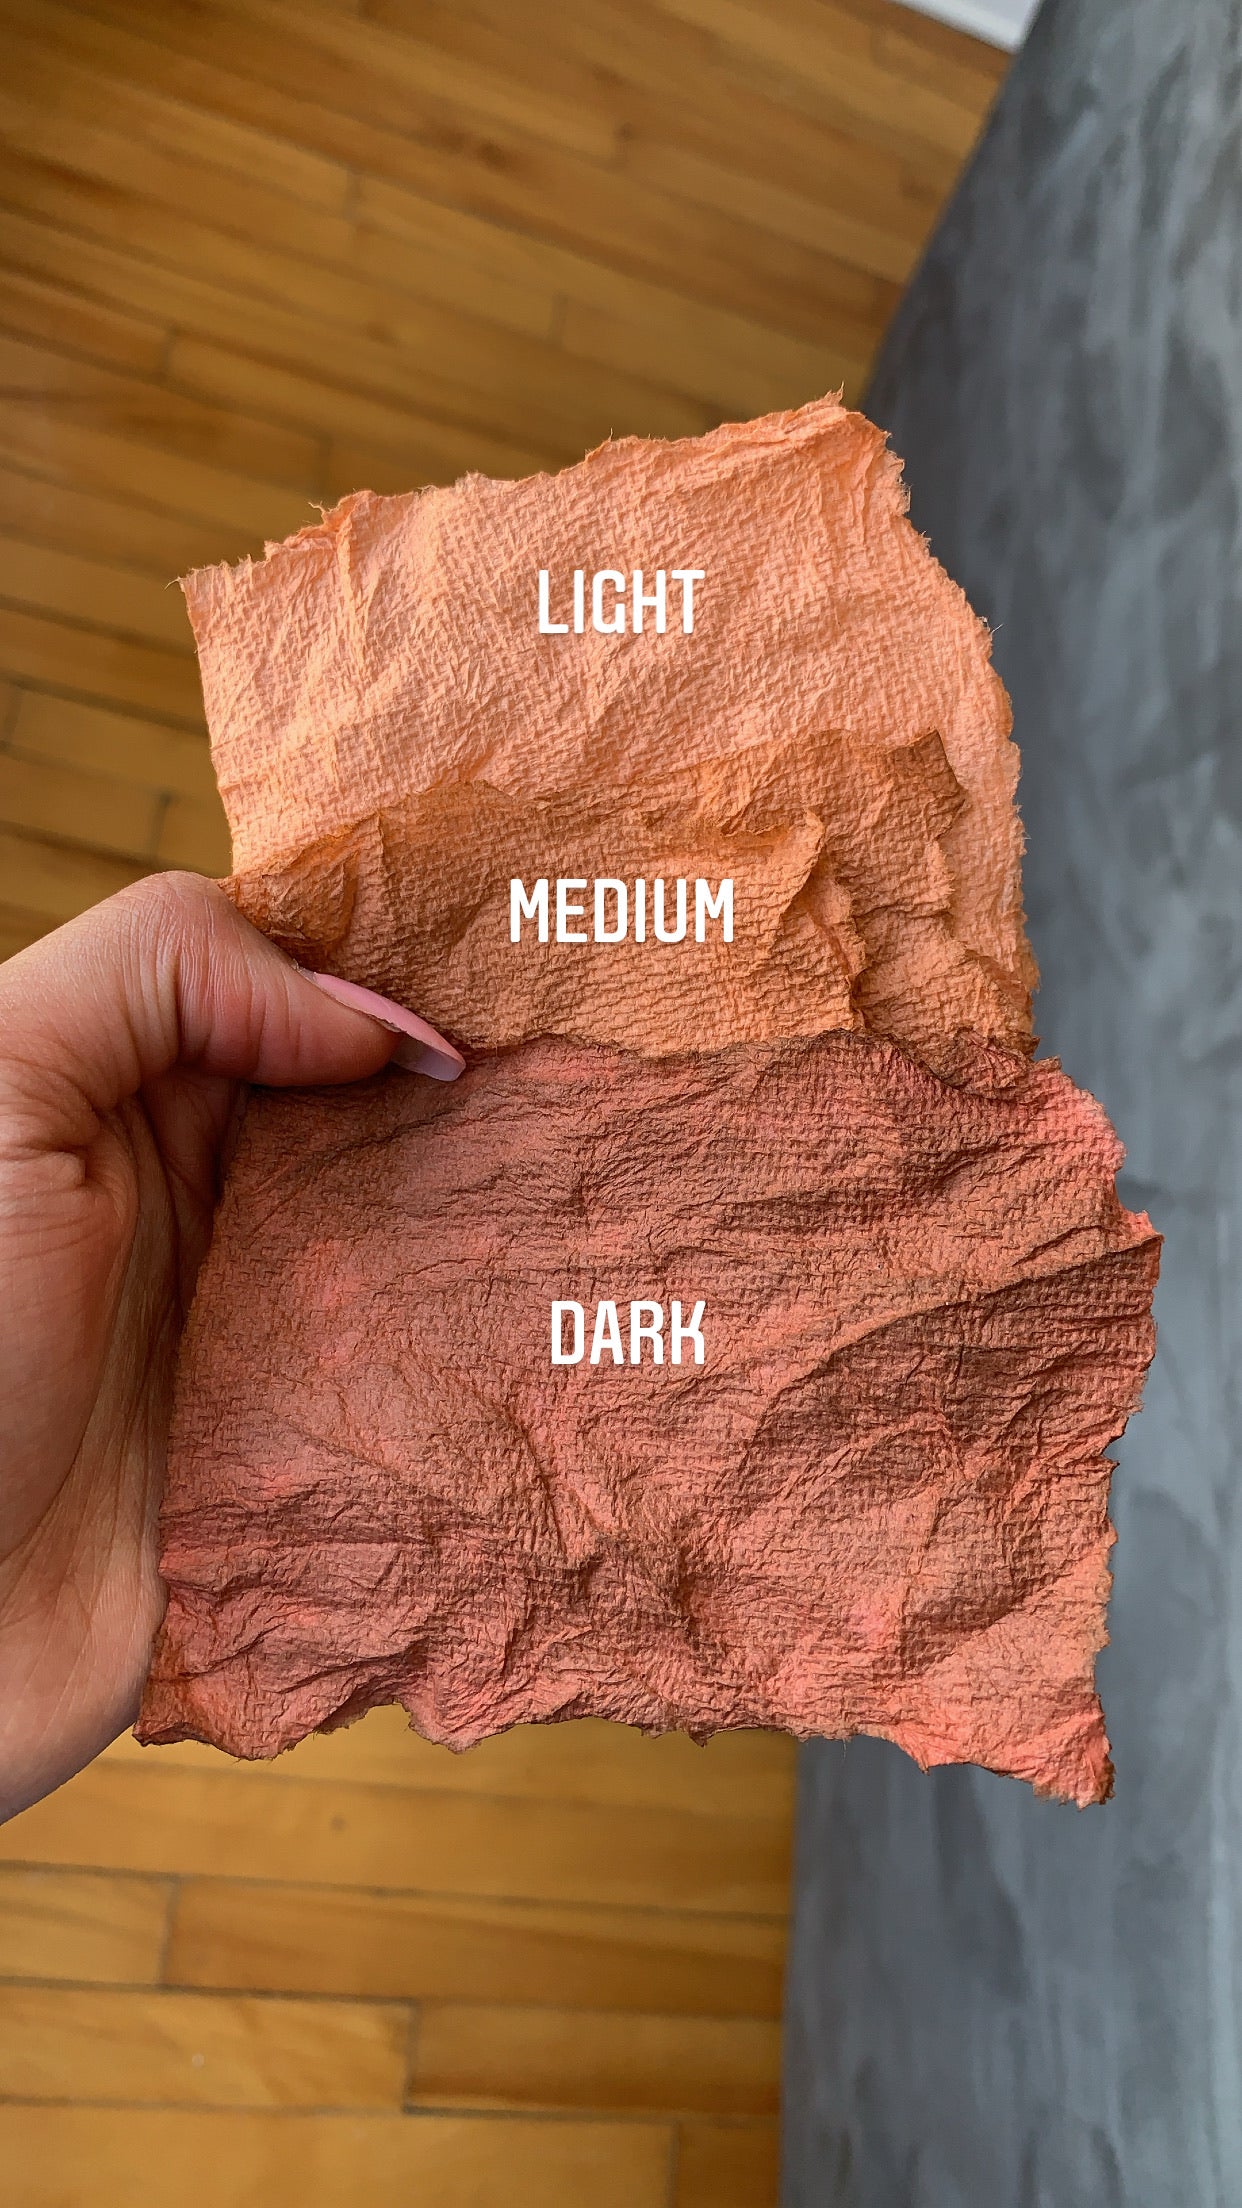 LIGHT
MEDIUM
DARK